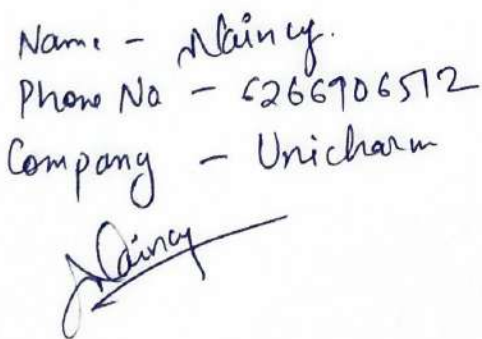 Name - Naincy.
Phone No - 6266906512
Company - Unicharm
Naincy